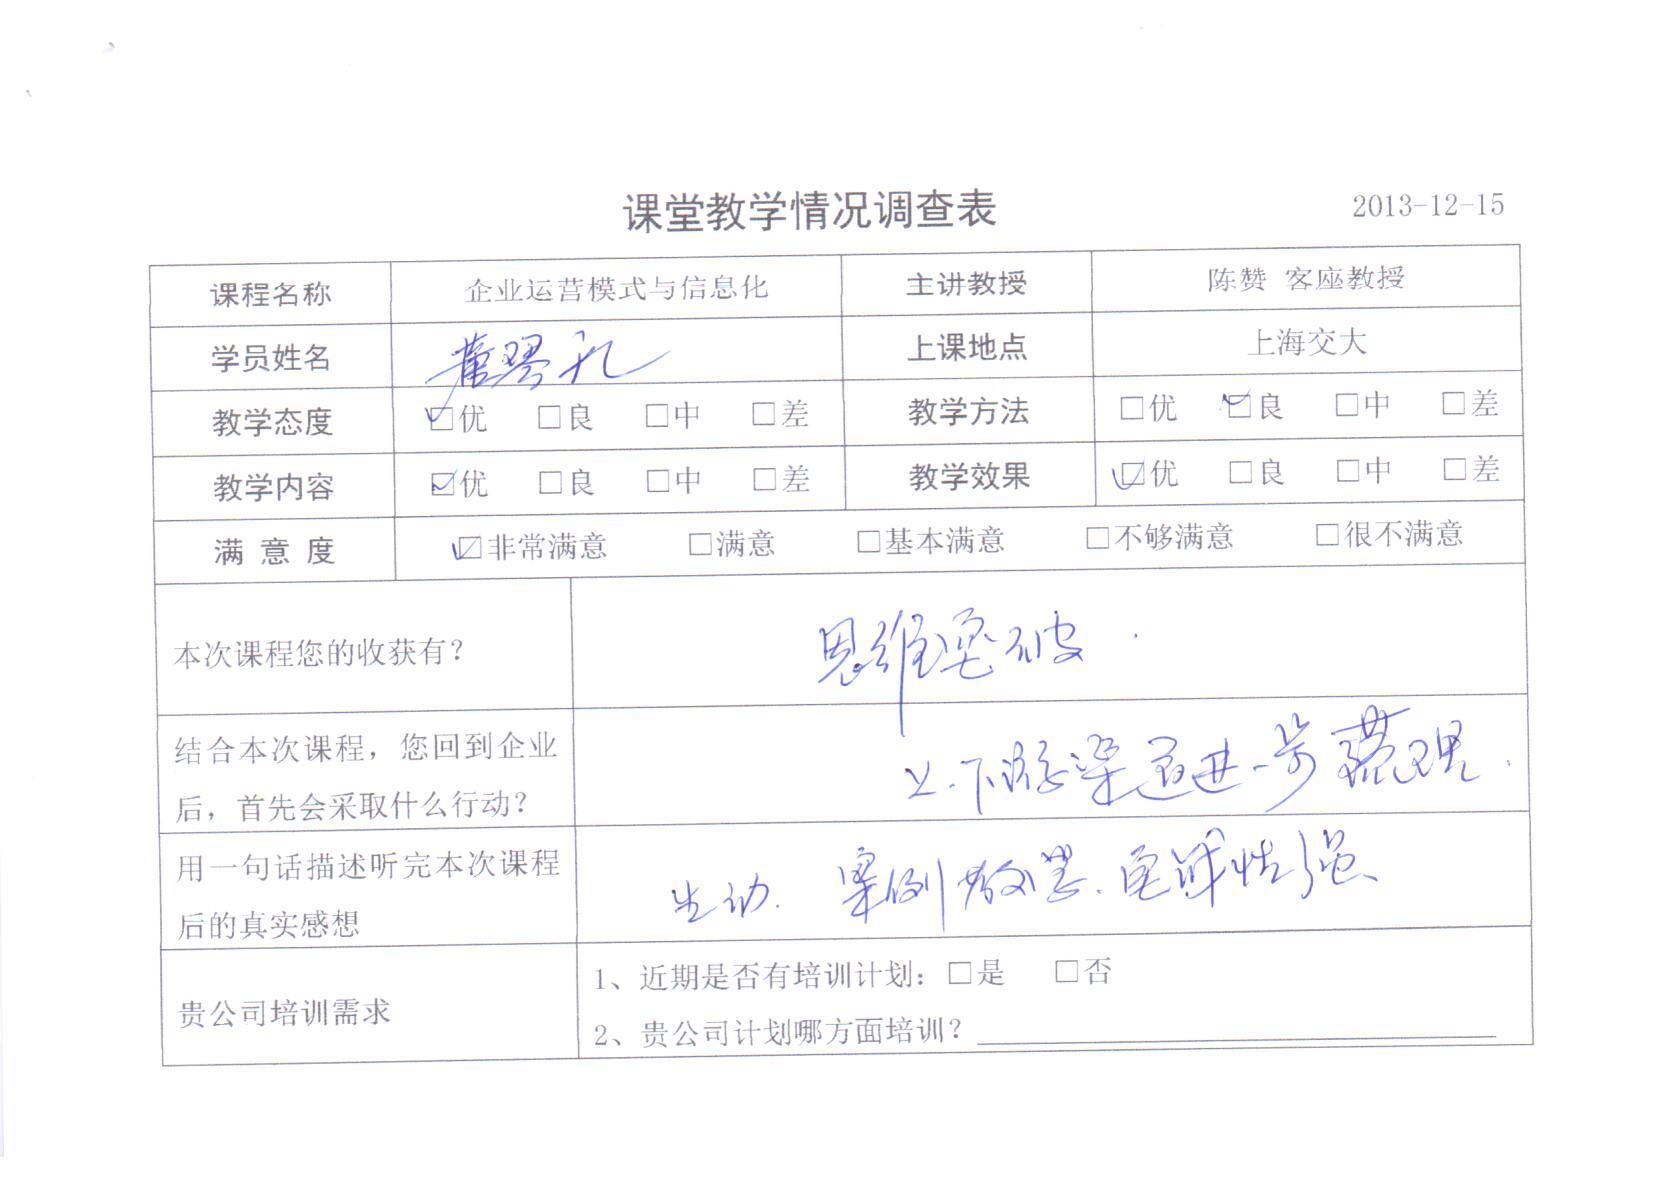 课堂教学情况调查表 2013-12-15
课程名称 企业运营模式与信息化 主讲教授 陈赞 客座教授
学员姓名 上课地点 上海交大
教学态度 ☑优 □良 □中 □差 教学方法 □优 ☑良 □中 □差
教学内容 ☑优 □良 □中 □差 教学效果 ☑优 □良 □中 □差
满意度 ☑非常满意 □满意 □基本满意 □不够满意 □很不满意
本次课程您的收获有？ 思维突破.
结合本次课程，您回到企业
后，首先会采取什么行动？ 上.下游渠道进一步疏理.
用一句话描述听完本次课程
后的真实感想 生动.案例教学.性强
贵公司培训需求
1、近期是否有培训计划：□是 □否
2、贵公司计划哪方面培训？